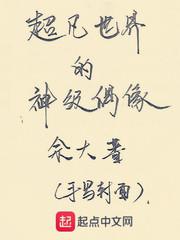 超凡世界
的
神级偶像
佘大耆
(手写封面)
起 起点中文网